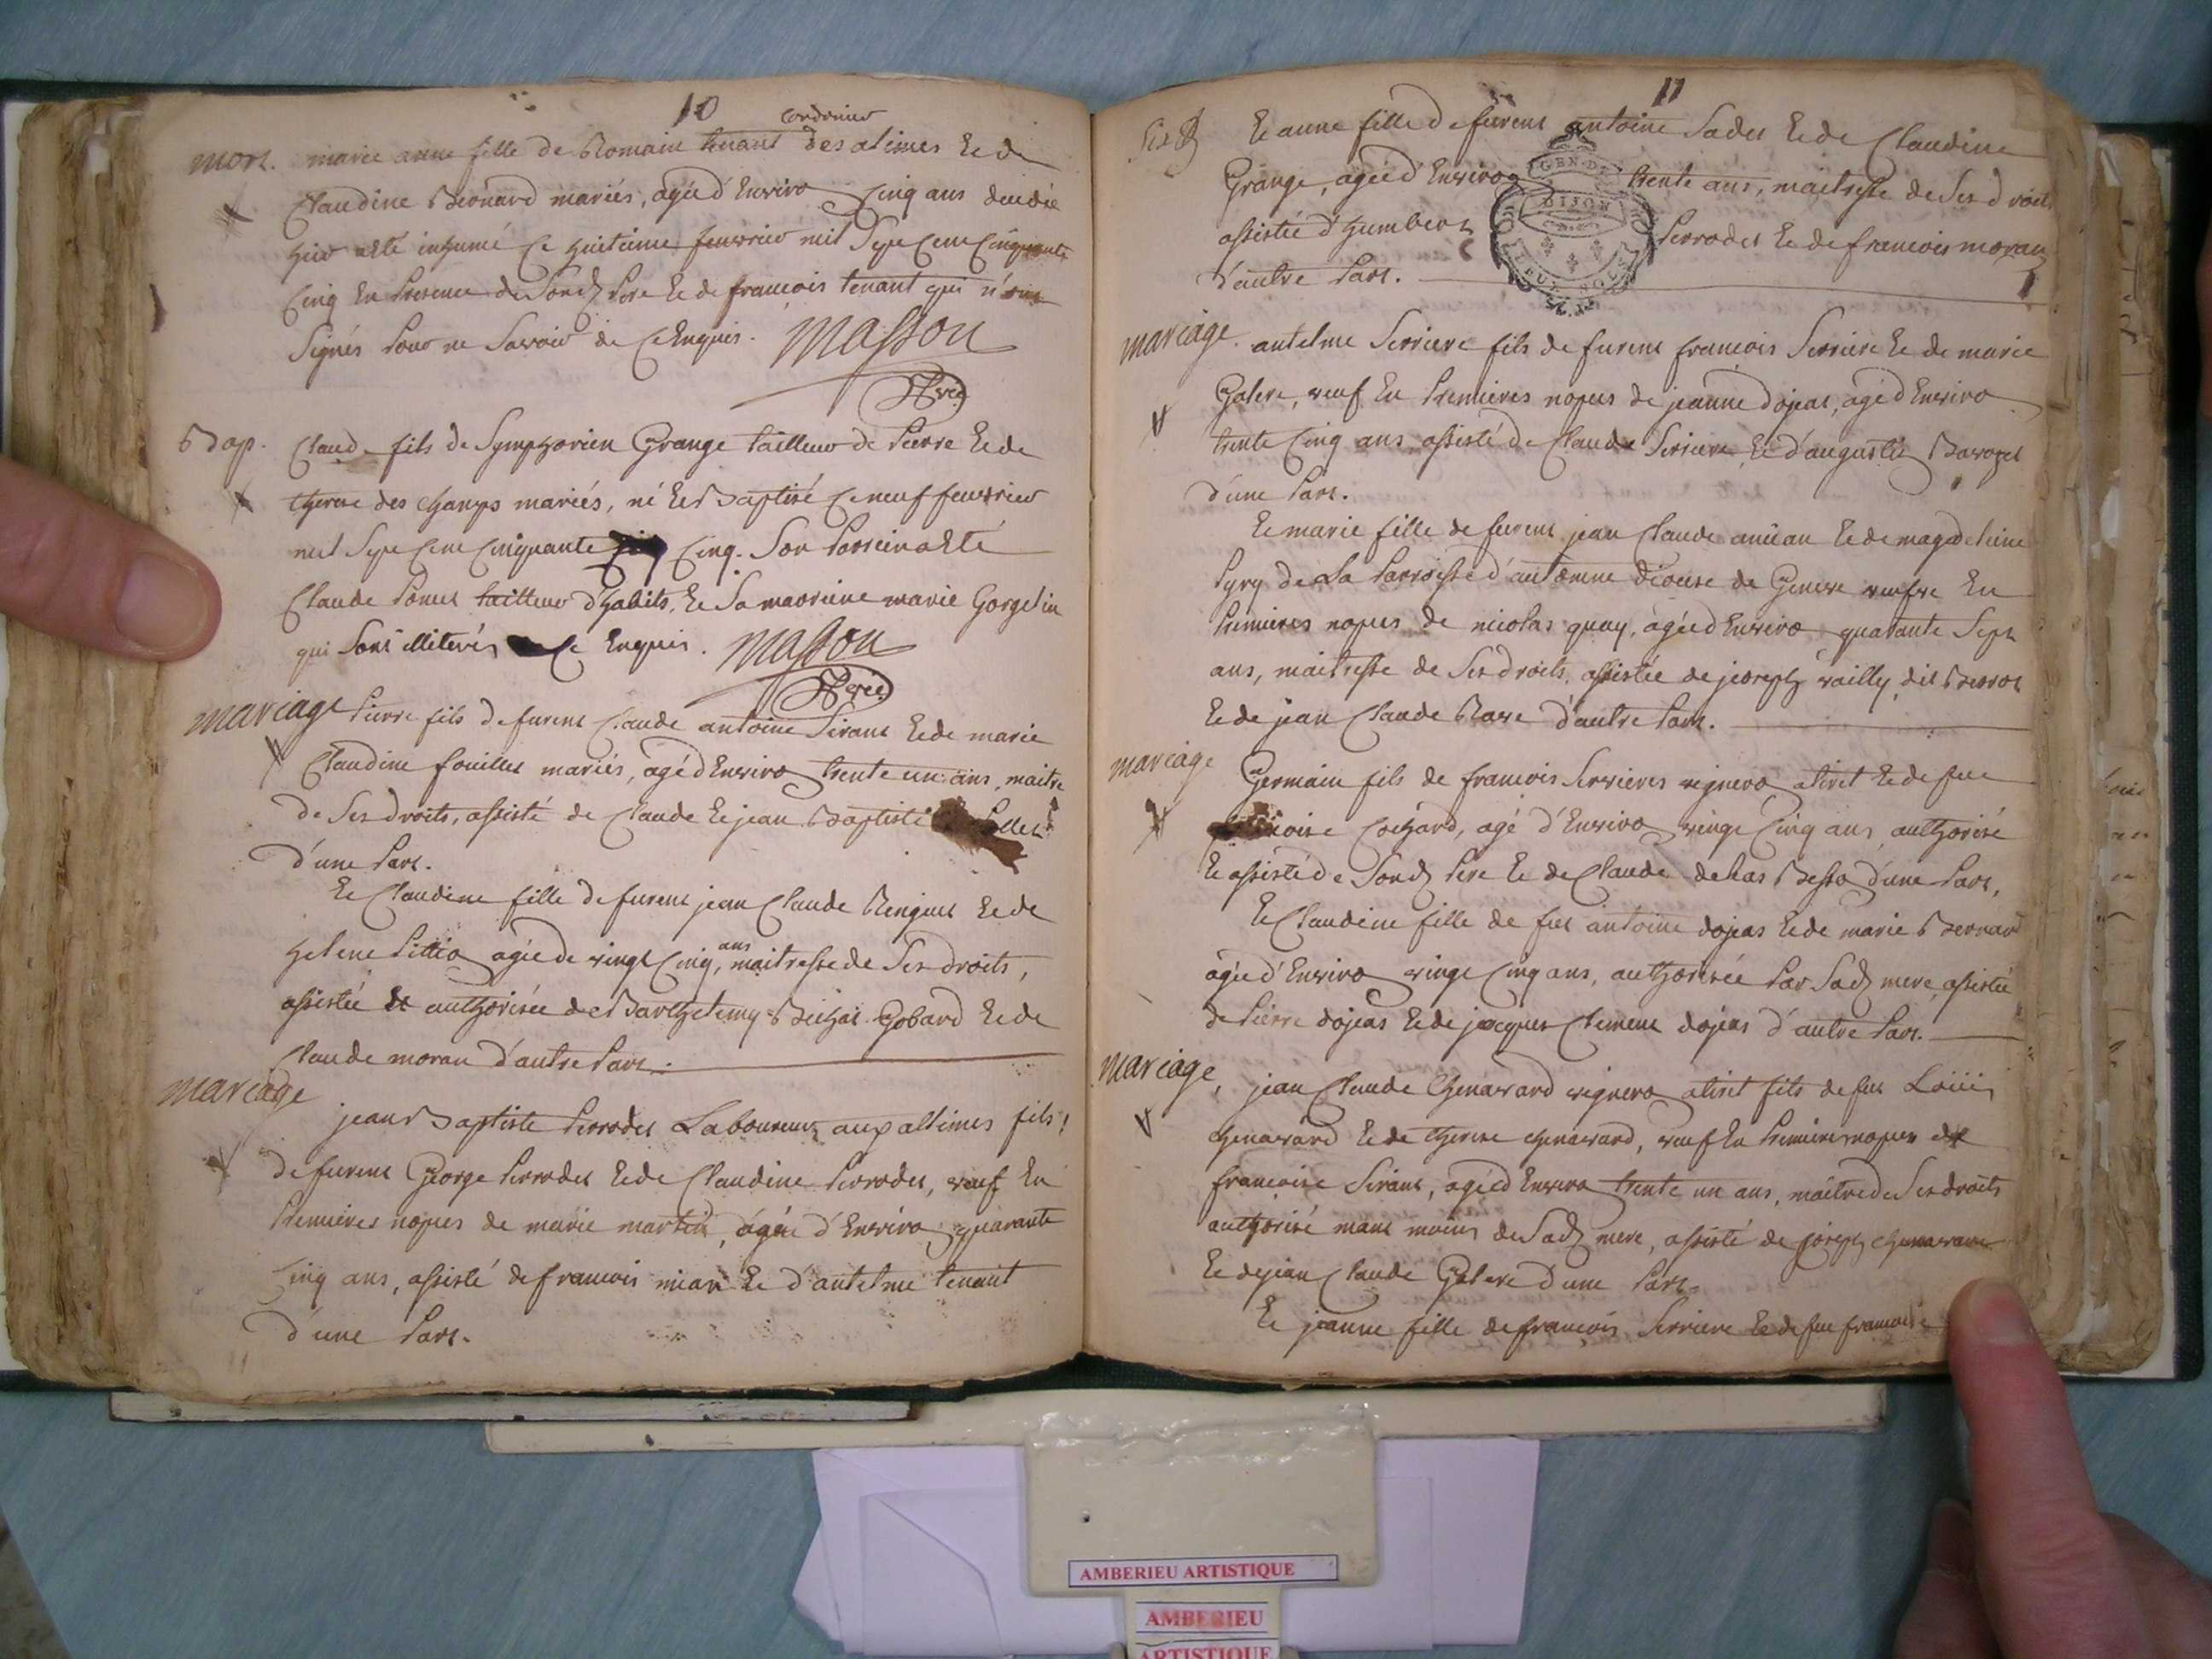 10
cordonier
mort. marie anne fille de Romain tenant des alimes et de
Claudine Bernard mariés, agée d'Environ Cinq ans decedée
hier a eté inhumé Ce huitieme feuvrier mil Sept Cent Cinquante
Cinq En Presence de Sond Pere et de francois tenant qui n'ont
Signés Pour ne Savoir de Ce Enquis. Masson
Bap. Claude fils de Symphorien Grange tailleur de Pierre et de
therese des champs mariés, né et Baptisé Ce neuf feuvrier
mil Sept Cent Cinquante Cinq. Son Parrein a Eté
Claude Ponet tailleur d'habits, et Sa marreine marie Gorgelin
qui Sont illiterés de Ce Enquis. Masson
mariage Pierre fils de furent Claude antoine Sirant et de marie
Claudine fouillet mariés, agé d'Environ trente un ans, maitre
de Ses droits, assisté de Claude et jean Baptiste
d'une Part.
et Claudine fille de furent jean Claude et de
helene agée de vingt Cinq ans, maitresse de Ses droits,
assistée et authorisée de Barthelemy Gobard et de
Claude moran d'autre Part.
mariage
jean Baptiste Perrodet Laboureur aux alimes fils
de furent George Perrodet et de Claudine Perrodet, veuf En
Premieres nopces de marie martin, agée d'Environ quarante
Cinq ans, assisté de francois et d'antelme tenant
d'une Part.
11
et anne fille de furent antoine Sadet et de Claudine
Grange, agée d'Environ trente ans, maitresse de Ses droits
assistée d'humbert Perrodet et de francois moran
d'autre Part.
GEN. DE
DIJON
mariage. antelme Serriere fils de furent francois Serriere et de marie
Galere, veuf En Premieres nopces de jeanne dojeat, agé d'Environ
trente Cinq ans assisté de Claude Serriere et d'augustin
d'une Part.
et marie fille de furent jean Claude et de magdeleine
de La Parroisse d' diocese de Geneve veufve En
Premieres nopces de nicolas quay, agée d'Environ quarante Sept
ans, maitresse de Ses droits, assistée de joseph vailly dit
et de jean Claude d'autre Part.
mariage Germain fils de francois Serrieres vigneron a tiret et de fue
Cochard, agé d'Environ vingt Cinq ans, authorisé
et assisté de Sond Pere et de Claude d'une Part,
et Claudine fille de fut antoine dojeas et de marie Bernard
agée d'Environ vingt Cinq ans, authorisée Par Sad mere, assistée
de Pierre dojeas et de jacques Clement dojeas d'autre Part.
mariage, jean Claude Chenavard vigneron a tiret fils de fut Loüis
chenavard et de therese chenavard, veuf En Premieres nopces de
francoise Sirant, agé d'Environ trente un ans, maitre de Ses droits
authorisé neant moins de Sad mere, assisté de joseph chenavard
et de jean Claude Galere d'une Part.
et jeanne fille de francois Serriere et de fue francoise
AMBERIEU ARTISTIQUE
AMBERIEU
ARTISTIQUE